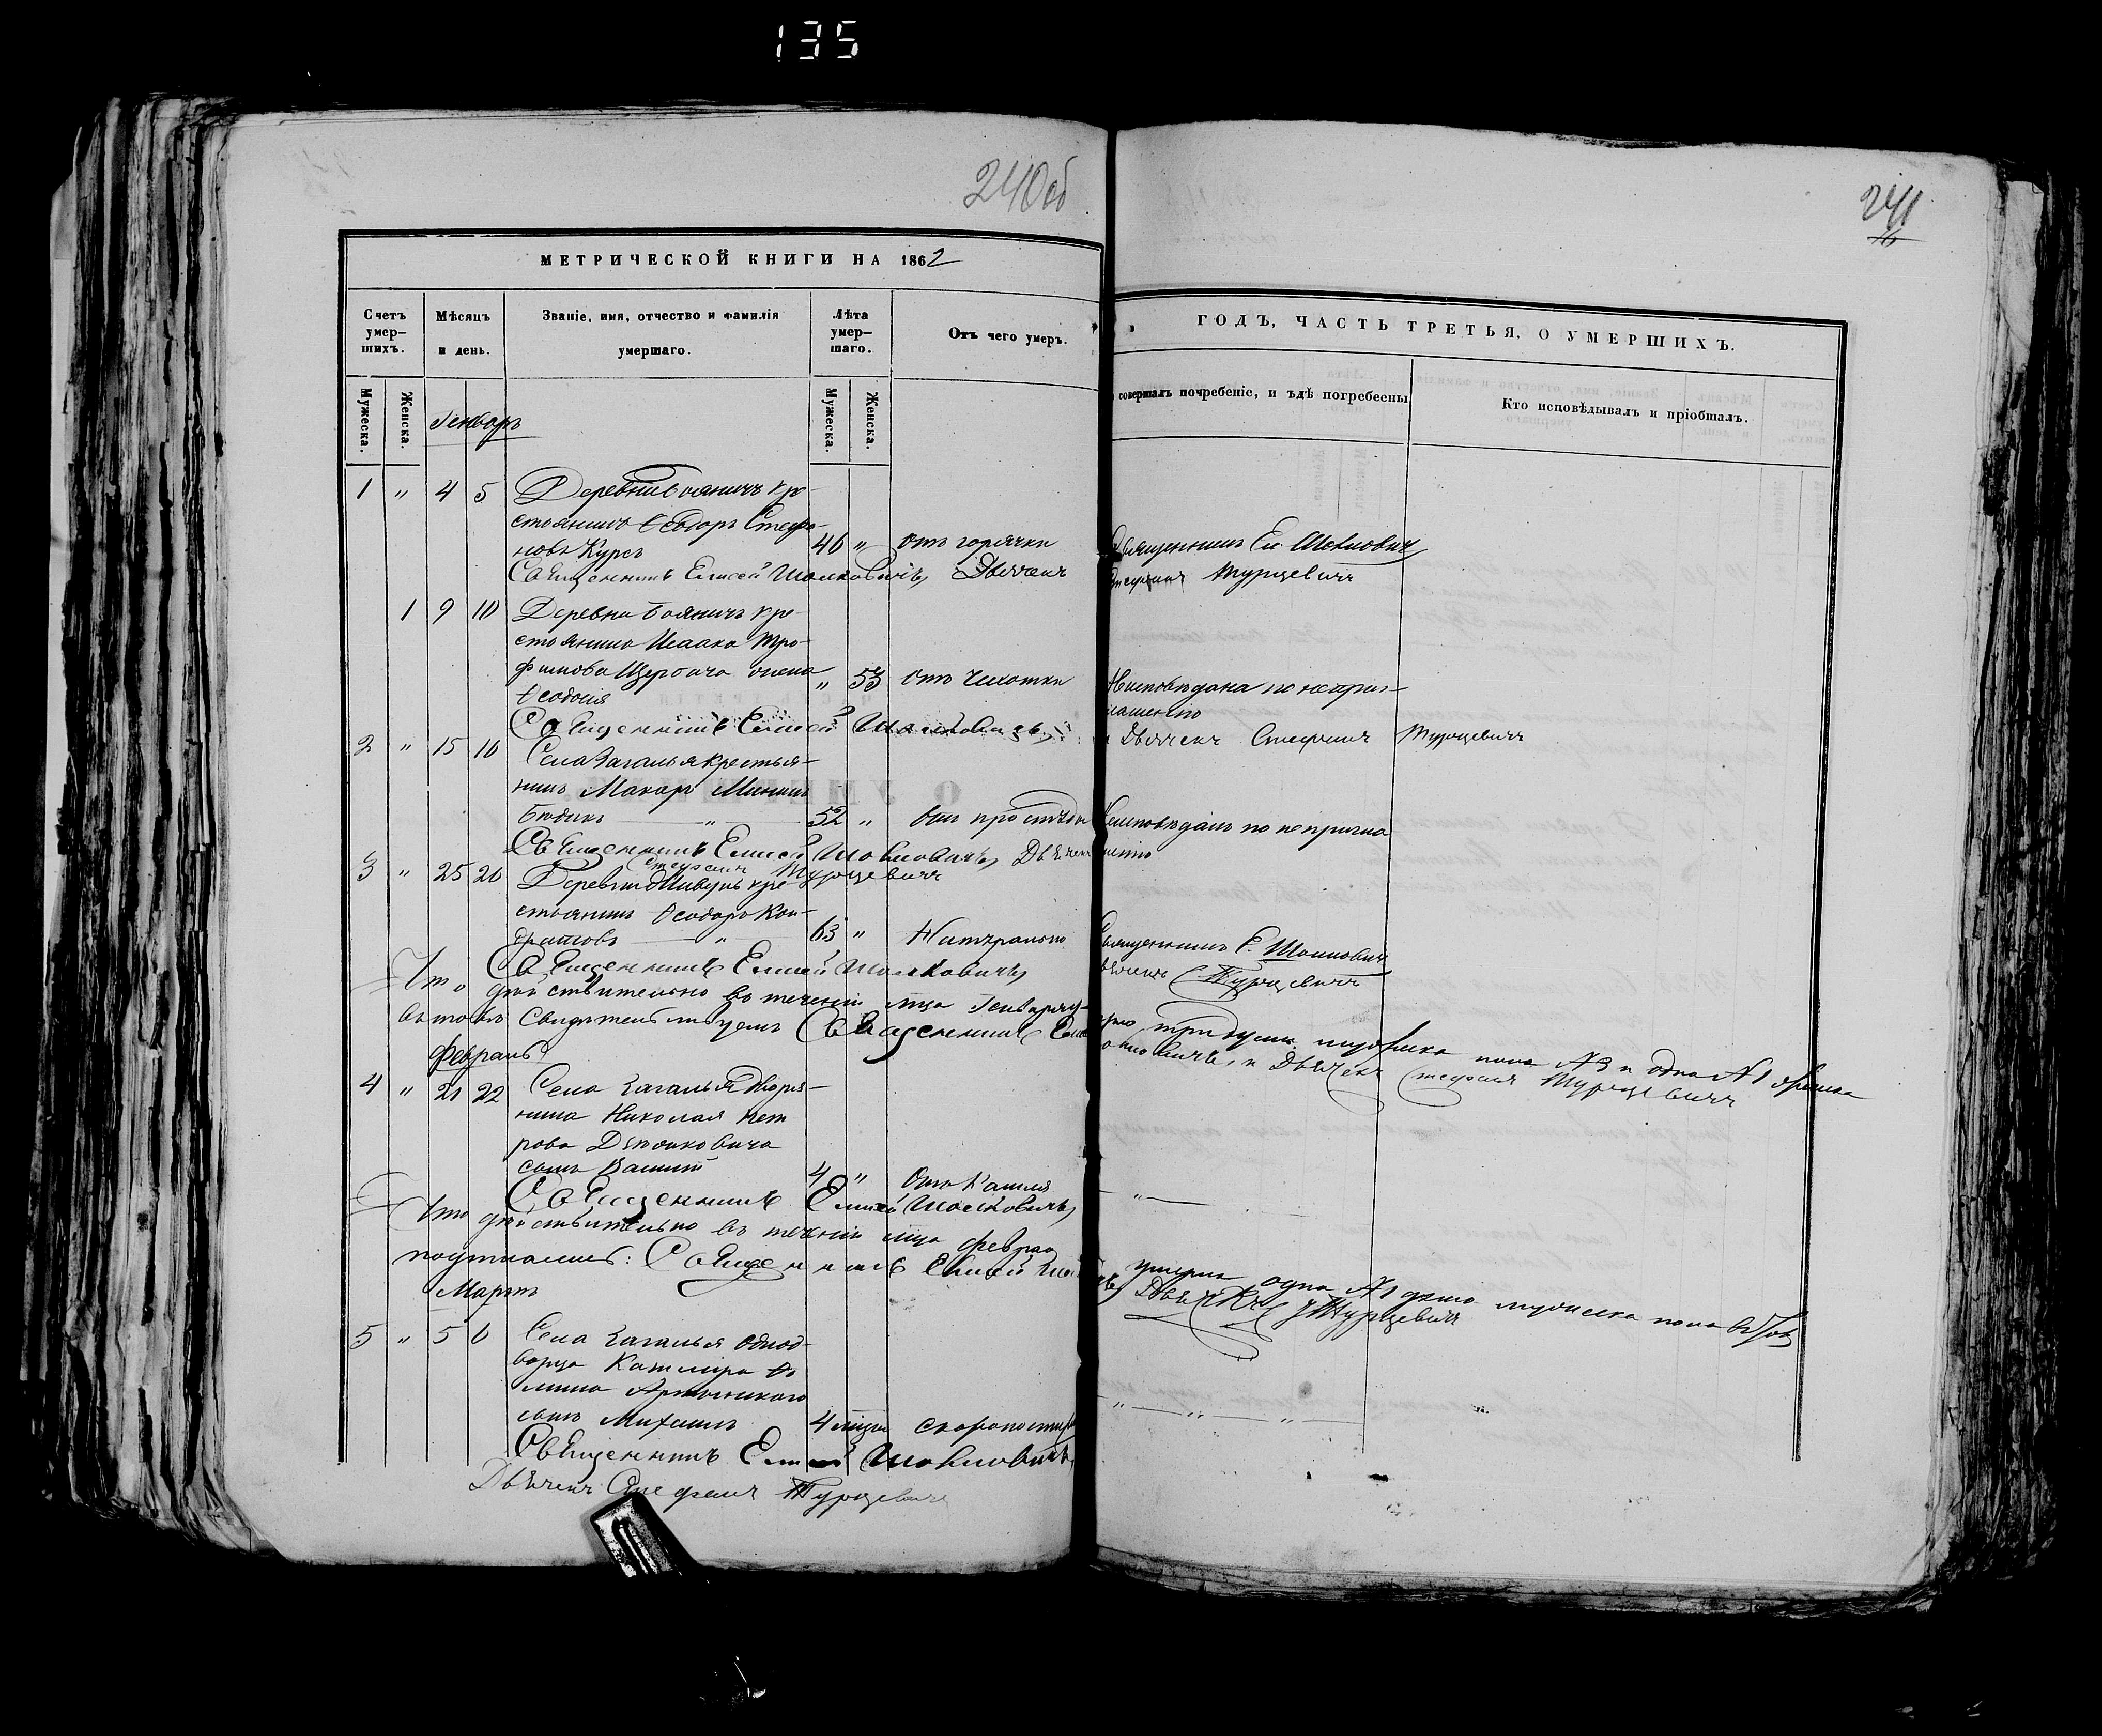 135
240об
241
16
МЕТРИЧЕСКОЙ КНИГИ НА 1862
ГОДЪ, ЧАСТЬ ТРЕТЬЯ, О УМЕРШИХЪ.
Счетъ умер-шихъ.
Мѣсяцъ и день.
Званіе, имя, отчество и фамилія умершаго.
Лѣта умер-шаго.
Отъ чего умеръ.
совершалъ погребеніе, и гдѣ погребены
Кто исповѣдывалъ и пріобщалъ.
Мужеска. Женска.
Мужеска. Женска.
Генварь
1 " 4 5 Деревни Бояничъ кре-
стьянинъ Ѳеодоръ Стефа-
новъ Курсъ 46 " отъ горячки Священникъ Ел. Шолковичъ
Священникъ Елисей Шолковичъ, Дьячекъ Стефанъ Турцевичъ
1 9 10 Деревни Бояничъ кре-
стьянина Исаака Тро-
фимова Щербача жена
Ѳеодосія " 53 отъ чахотки Неисповѣдана по непри-
глашенію
Священникъ Елисей Шолковичъ, и Дьячекъ Стефанъ Турцевичъ
2 " 15 16 Села Загалья крестья-
нинъ Макаръ Мининъ
52 " отъ простуды Неисповѣданъ по непригла
Священникъ Елисей Шолковичъ, Дьячекъ шенію
Стефанъ Турцевичъ
3 " 25 26 Деревни кре-
стьянинъ Ѳеодоръ Кон-
дратовъ " 63 " Натурально Священникъ Е. Шолковичъ
Священникъ Елисей Шолковичъ, Дьячекъ С Турцевичъ
Что дѣйствительно въ теченіи мца Генваря
три души мужеска пола №3 и одна №1 женска
въ томъ свидѣтельствуемъ Священникъ Елисей Шолковичъ, и Дьячекъ Стефанъ Турцевичъ
Февраль
4 " 21 22 Села Загалья дворя-
нина Николая Пет
рова
сынъ 4 " Отъ кашля "
Священникъ Елисей Шолковичъ,
Что дѣйствительно въ теченіи мца Февраля умерла одна №1 душа мужеска пола въ томъ
подписались: Священникъ Елисей Шолковичъ Дьячекъ С Турцевичъ
Мартъ
5 " 5 6 Села Загалья однод-
ворца Казиміра Ѳо
мина
сынъ Михаилъ 4 мцы скоропостижно " " "
Священникъ Елисей Шолковичъ,
Дьячекъ Стефанъ Турцевичъ